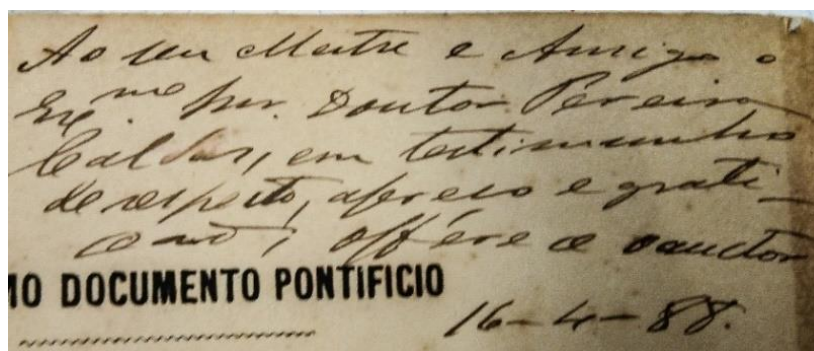 Ao seu Mestre e Amigo o
Ex.mo Snr. Doutor Pereira
Caldas, em testimunho
de respeito, apreço e grati-
dão, offerece o auctor
IO DOCUMENTO PONTIFICIO
16-4-88.